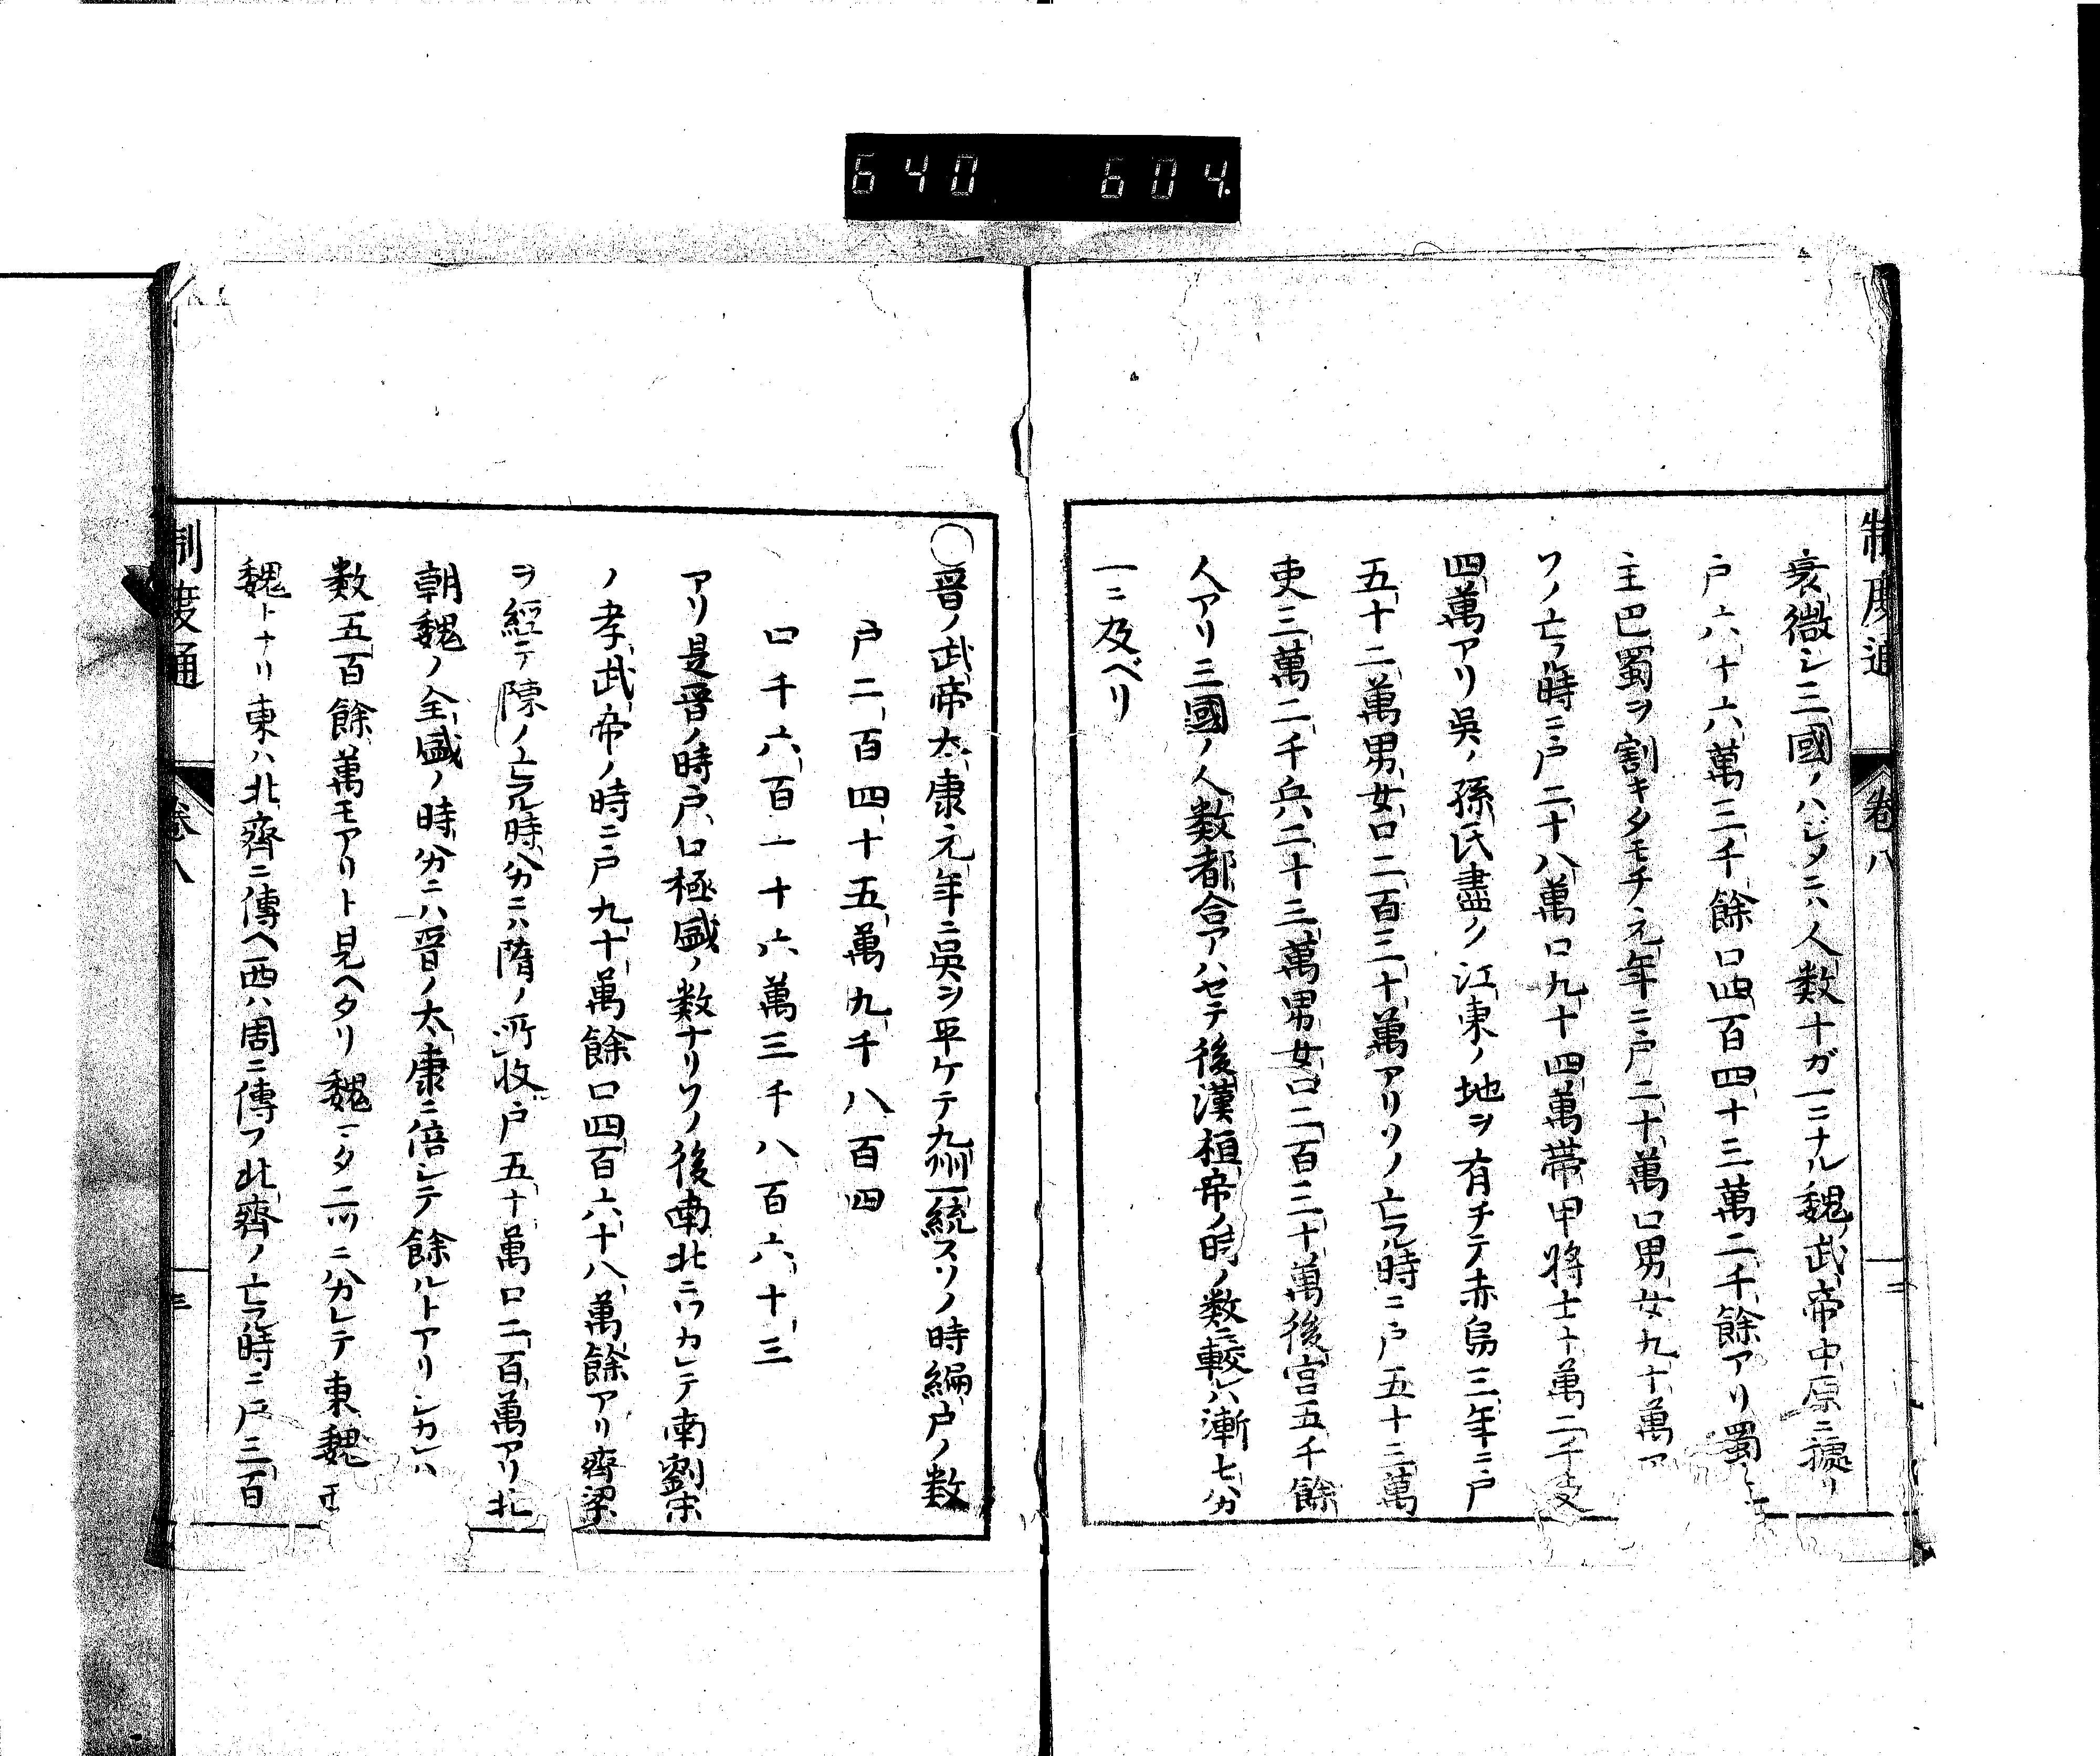 640 604
制度通 卷八 二
衰微シ三國ノハジメニハ人数十ガ一ニナル魏武帝中原ニ據リ
戸六十六萬三千餘口四百四十三萬二千餘アリ蜀
主巴蜀ヲ割キタモチ元年ニ戸二十萬口男女九十萬ア
ソノ亡フル時ニ戸二十八萬口九十四萬帯甲将士十萬二千
四萬アリ吳ノ孫氏盡ク江東ノ地ヲ有チテ赤烏三年ニ戸
五十二萬男女口二百三十萬アリソノ亡フル時ニ戸五十三萬
吏三萬二千兵二十三萬男女口二百三十萬後宮五千餘
人アリ三國ノ人数都合アハセテ後漢桓帝ノ時ノ数ニ較レハ漸七八分
一ニ及ベリ
〇晋ノ武帝太康元年ニ吳ヲ平ケテ九州一統スソノ時編戸ノ数
戸二百四十五萬九千八百四
口千六百一十六萬三千八百六十三
アリ是晋ノ時戸口極盛ノ数ナリソノ後南北ニワカレテ南劉宋
ノ孝武帝ノ時ニ戸九十萬餘口四百六十八萬餘アリ齊梁
ヲ經テ陳ノ亡フル時分ニハ隋ノ所收戸五十萬口二百萬アリ北
朝魏ノ全盛ノ時分ニハ晋ノ太康ニ倍シテ餘ルトアリシカレハ
数五百餘萬モアリト見ヘタリ魏マタ二ツニ分レテ東魏
魏トナリ東ハ北齊ニ傳ヘ西ハ周ニ傳フ北齊ノ亡フル時ニ戸三百
制度通 卷八 三